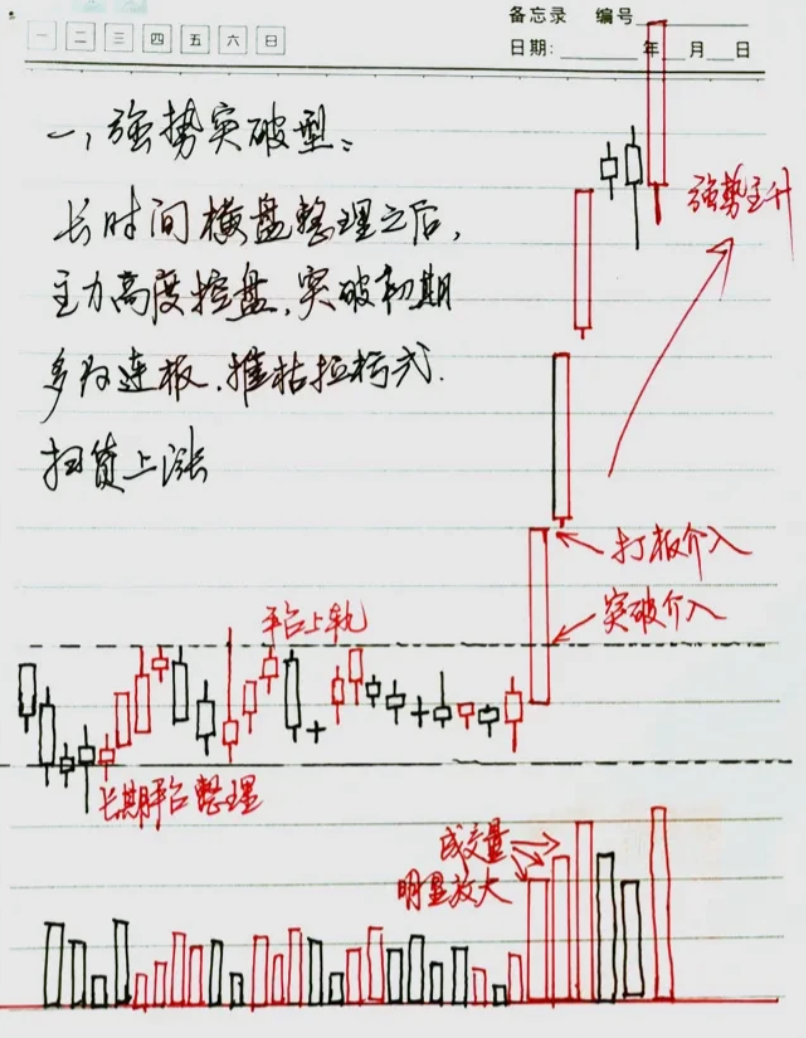 备忘录 编号
一 二 三 四 五 六 日
日期: 年 月 日
一,强势突破型:
长时间横盘整理之后,
主力高度控盘,突破初期
多为连板.摧枯拉朽式.
扫货上涨
强势主升
打板介入
突破介入
平台上轨
长期平台整理
成交量
明显放大